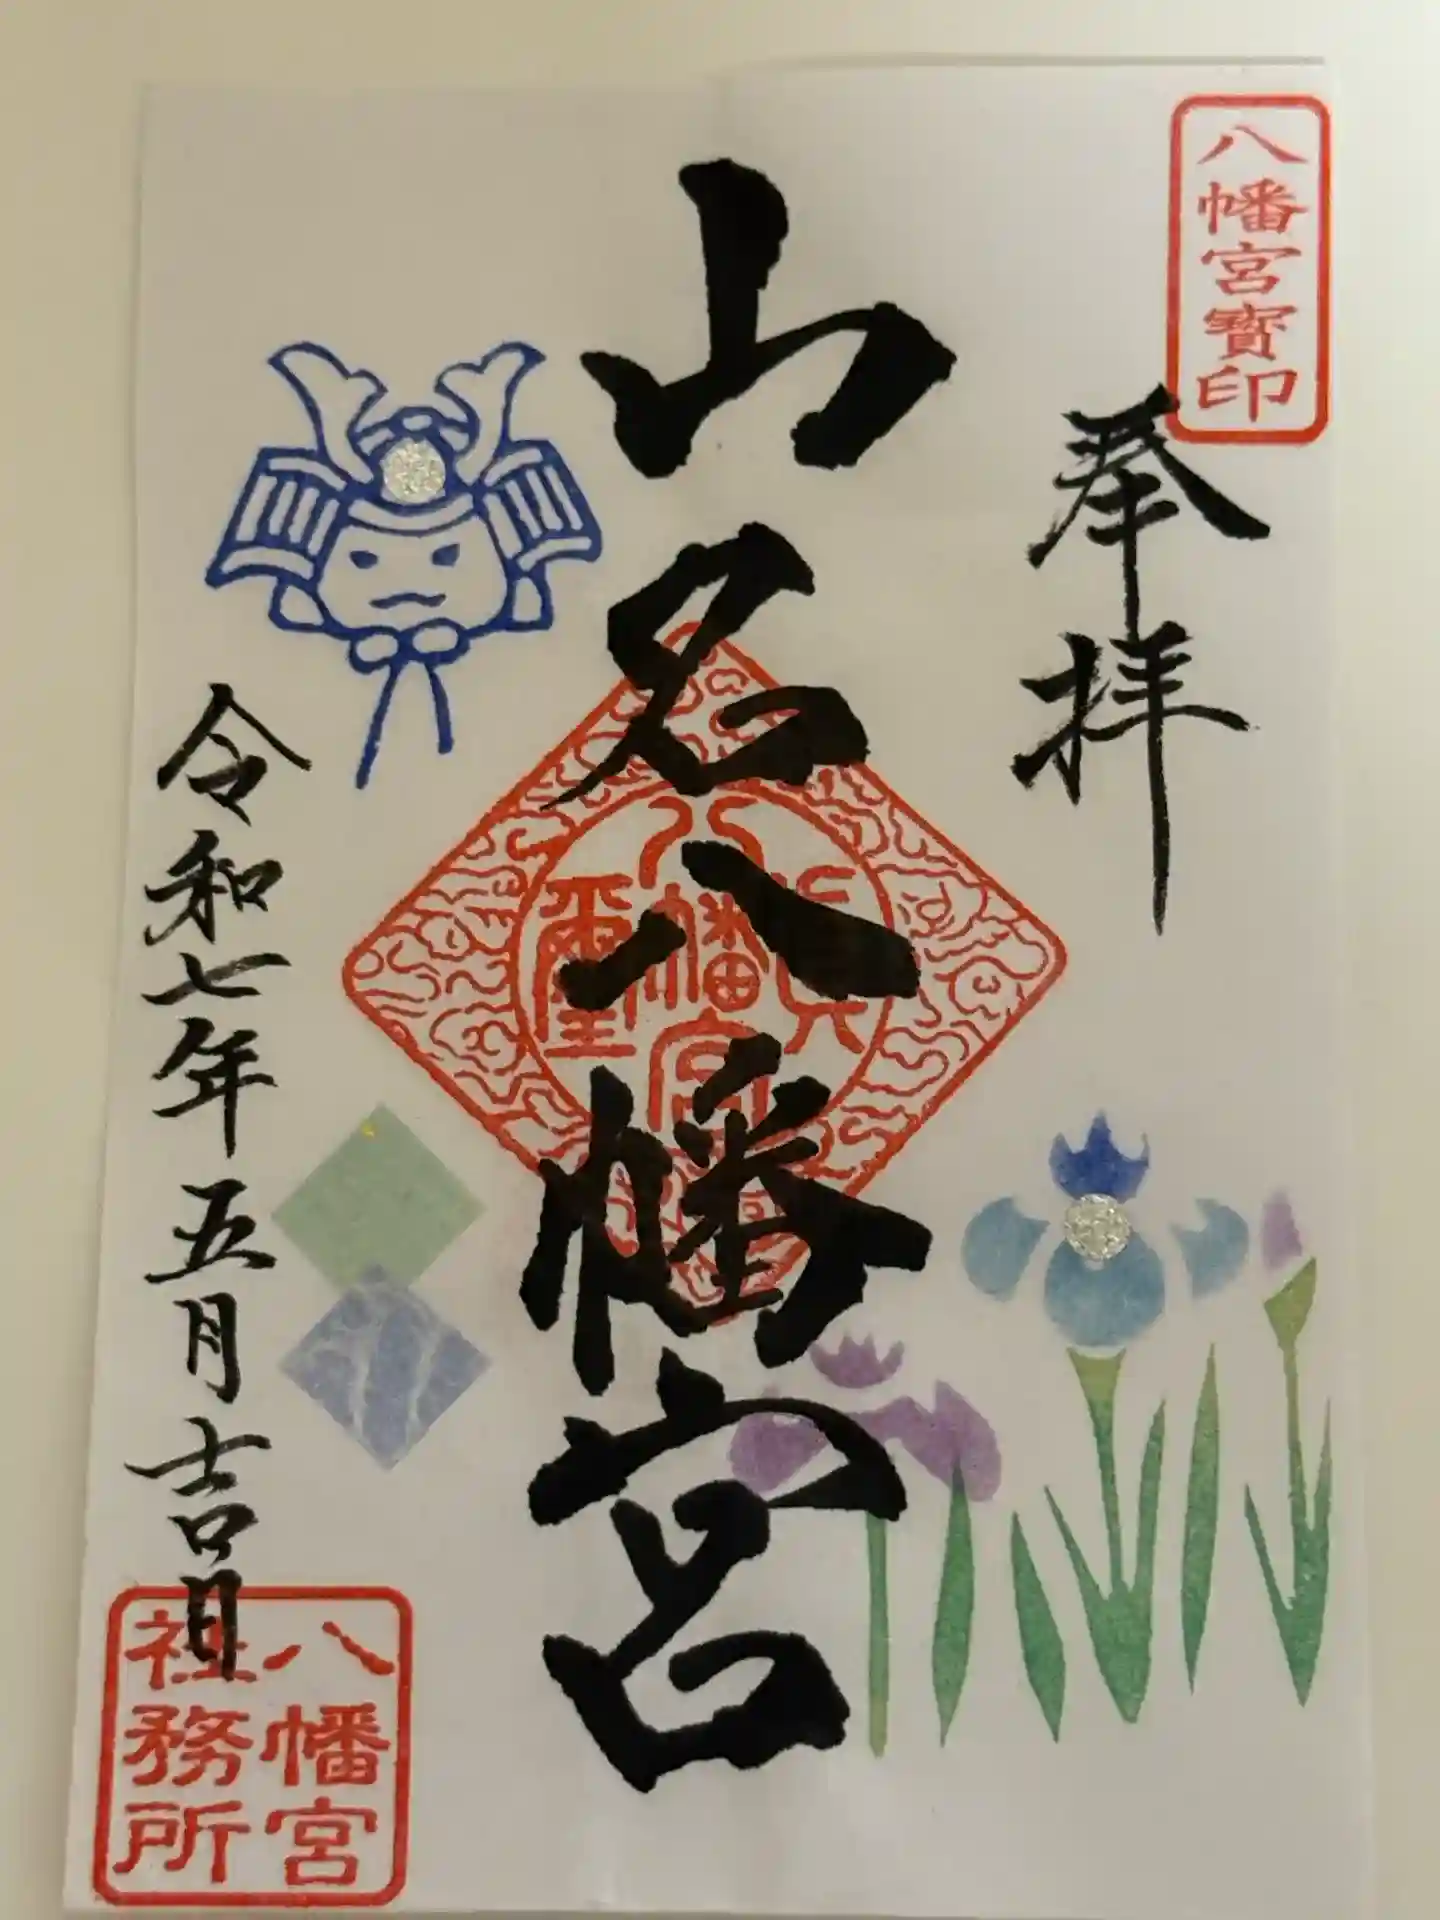 八幡宮寶印
奉拝
山名八幡宮
八幡宮
璽
令和七年五月吉日
八幡宮
社務所